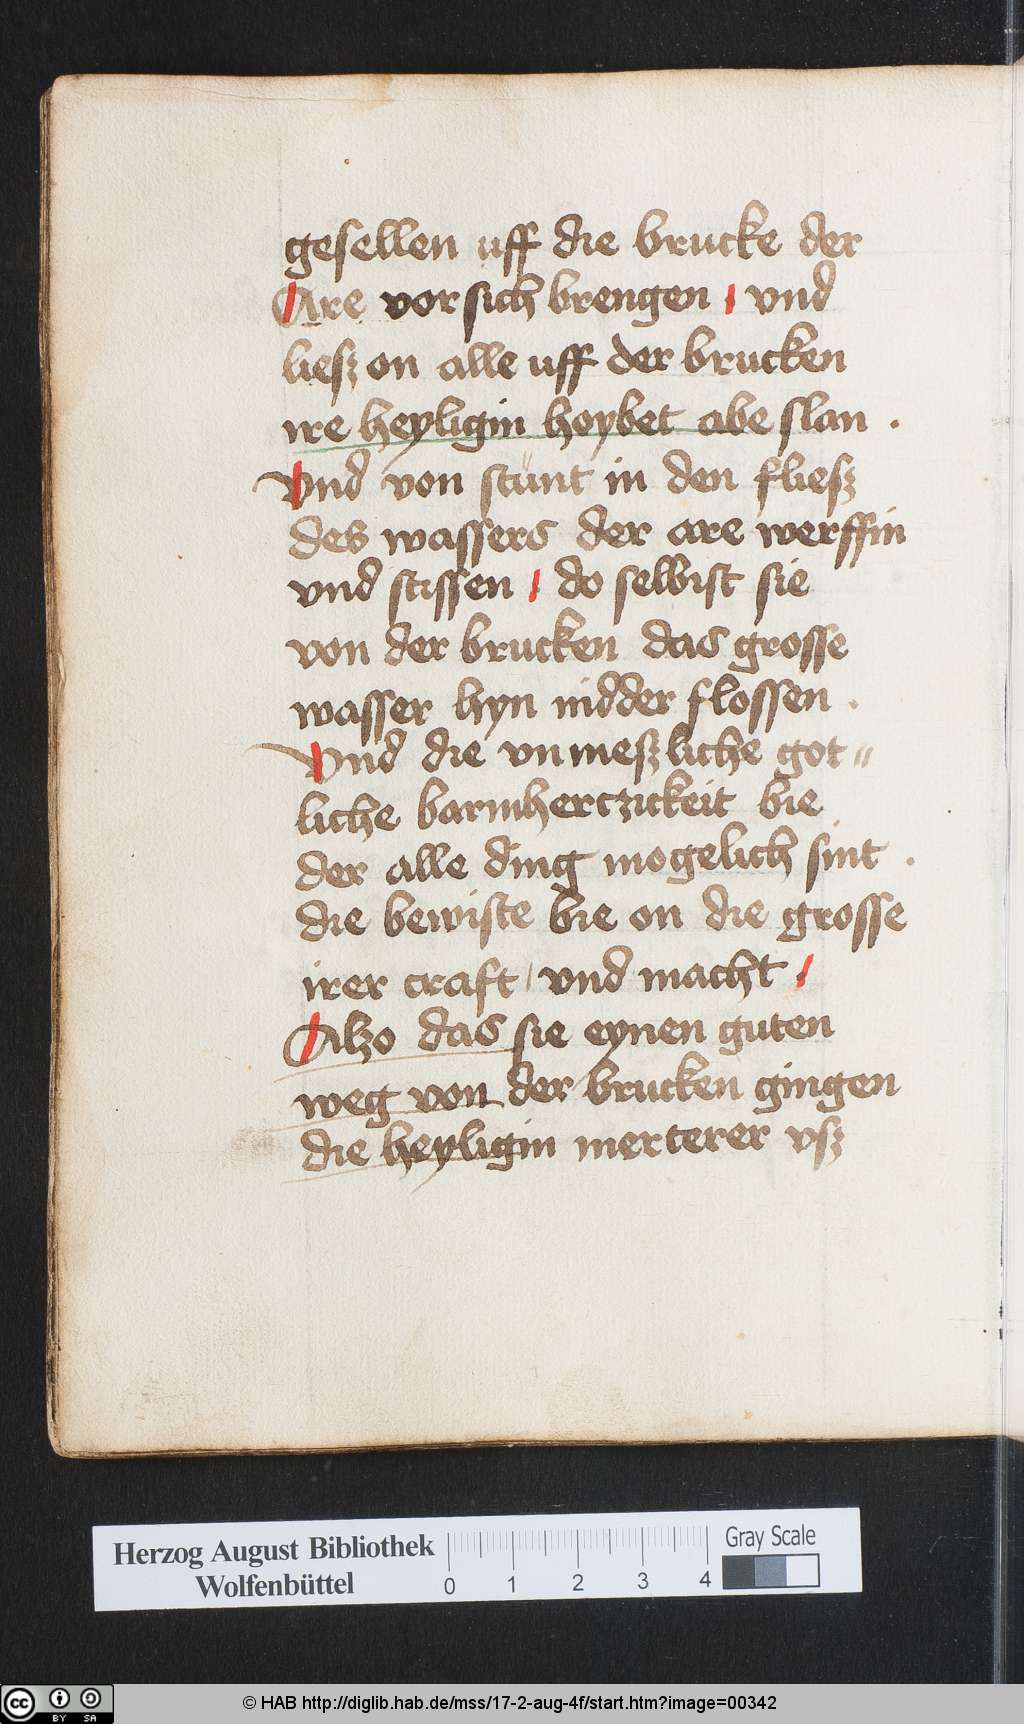 gesellen uff die brucke der
Are vor sich brengen / vnd
liesz on alle uff der brucken
ire heyligin hoybet abe slan .
Vnd von stunt in den fliesz
des wassers der are werffin
vnd stissen / do selbist sie
von der brucken das grosse
wasser hyn nidder flossen .
Vnd die vnmeszliche got〃
liche barmherczickeit bie
der alle ding mogelich sint .
die bewiste bie on die grosse
irer craft / vnd macht /
Alzo das sie eynen guten
weg von der brucken gingen
die heyligin merterer vsz
Herzog August Bibliothek
Wolfenbüttel
0 1 2 3 4
Gray Scale
cc BY SA
© HAB http://diglib.hab.de/mss/17-2-aug-4f/start.htm?image=00342